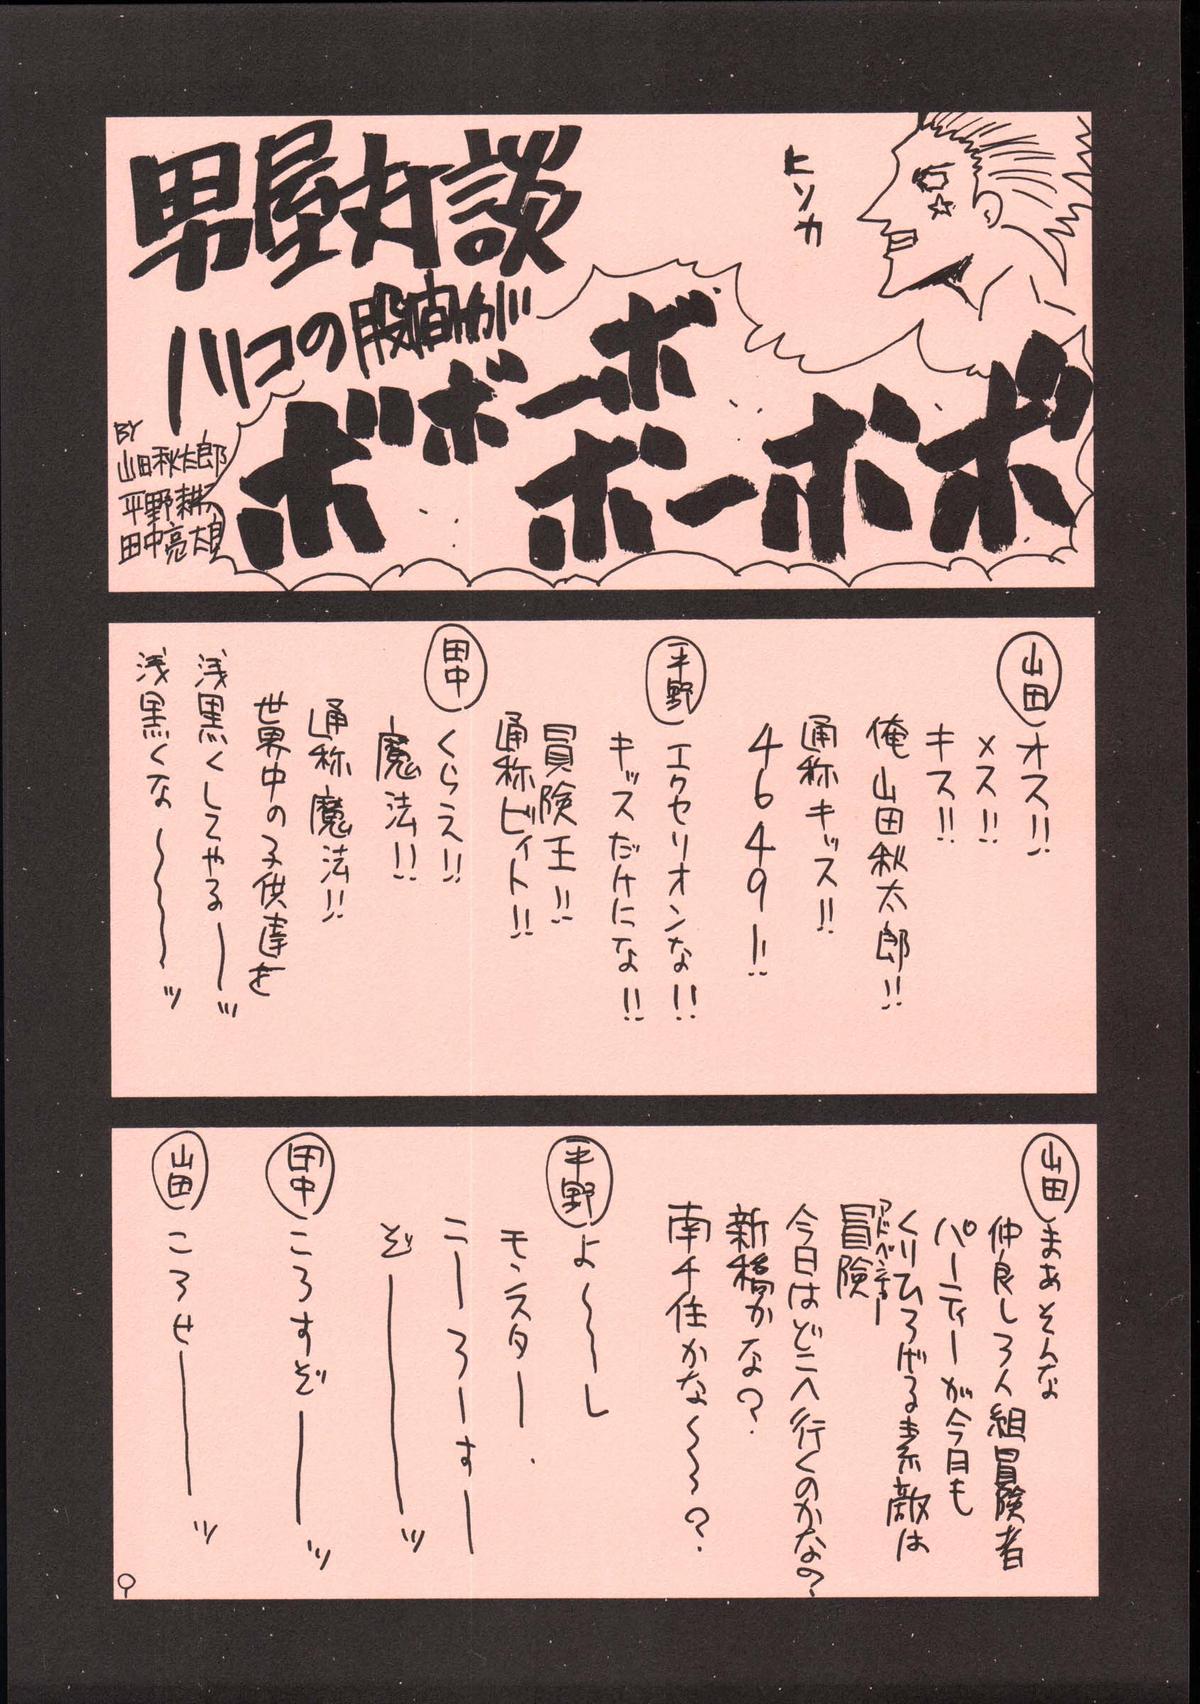 男屋対談
ハリコの股間が
ボボボーボ
ボーボボ
ヒソカ
BY
山田秋太郎
平野耕太
田中亮太見
山田
オス!!
メス!!
キス!!
俺山田秋太郎!!
通称キッス!!
4649ー!!
平野
エクセリオンな!!
キッスだけにな!!
冒険王!!
通称ビィト!!
田中
くらえ!!
魔法!!
通称魔法!!
世界中の子供達を
浅黒くしてやるーッ
浅黒くな〜〜〜ッ
山田
まあそんな
仲良し3人組冒険者
パーティーが今日も
くりひろげる素敵は
冒険
アドベンチャー
今日はどこへ行くのかな?
新橋かな?
南千住かな〜〜?
平野
よ〜〜し
モンスター
こーろーすー
ぞーーーッ
田中
ころすぞーーッ
山田
ころせーーーッ
9